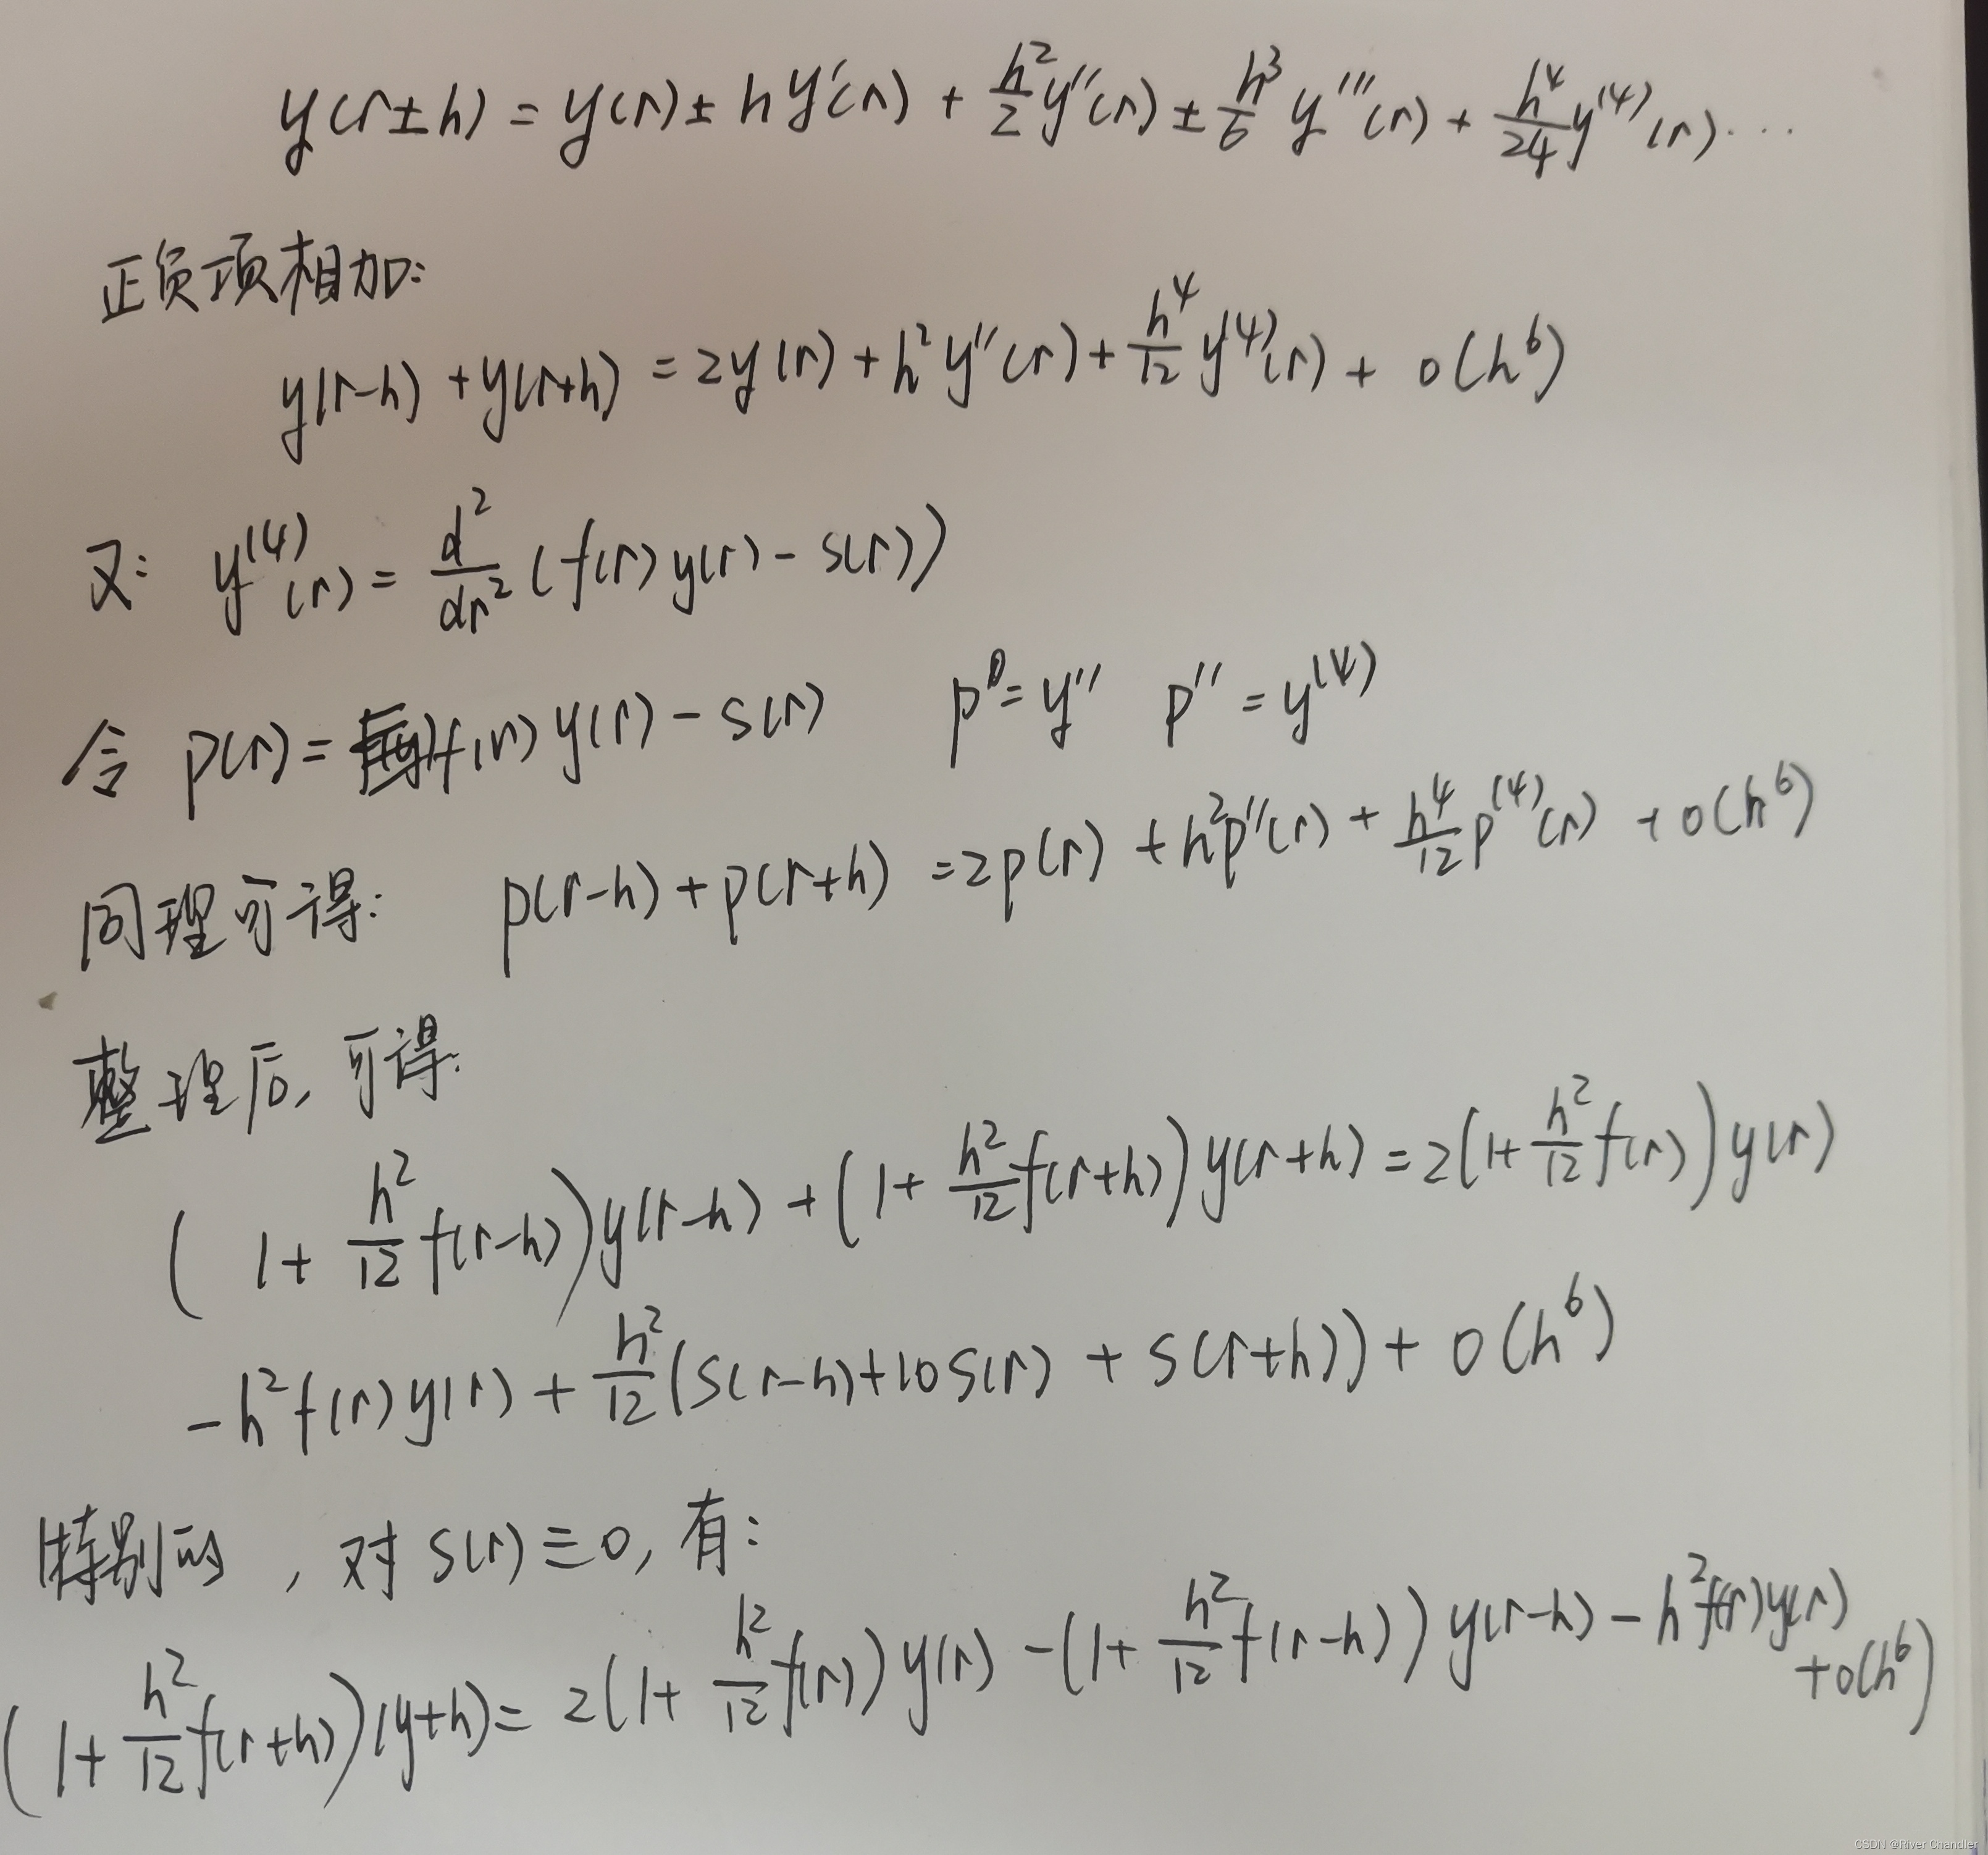 y(r±h) = y(r) ± hy'(r) + h²/2 y''(r) ± h³/6 y'''(r) + h⁴/24 y⁽⁴⁾(r)...
正负项相加:
y(r-h) + y(r+h) = 2y(r) + h²y''(r) + h⁴/12 y⁽⁴⁾(r) + o(h⁶)
又: y⁽⁴⁾(r) = d²/dr² (f(r)y(r) - s(r))
令 p(r) = f(r)y(r) - s(r) p = y'' p'' = y⁽⁴⁾
同理可得: p(r-h) + p(r+h) = 2p(r) + h²p''(r) + h⁴/12 p⁽⁴⁾(r) + o(h⁶)
整理后,可得:
(1 + h²/12 f(r-h))y(r-h) + (1 + h²/12 f(r+h))y(r+h) = 2(1 + h²/12 f(r))y(r)
-h²f(r)y(r) + h²/12 (s(r-h)+10s(r) + s(r+h)) + o(h⁶)
特别的, 对s(r)≡0, 有:
(1 + h²/12 f(r+h))(y+h) = 2(1 + h²/12 f(r))y(r) - (1 + h²/12 f(r-h))y(r-h) - h²f(r)y(r)
+o(h⁶)
CSDN @River Chandler